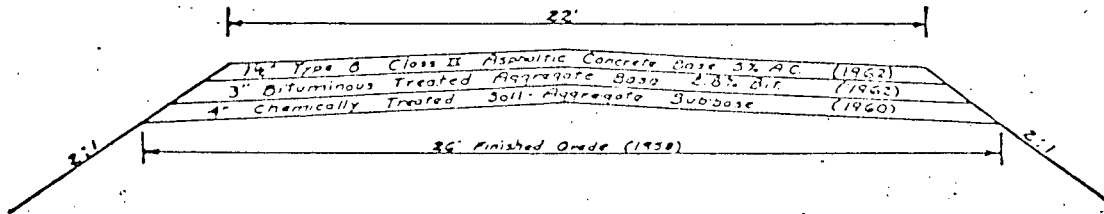 22'
1½" Type B Class II Asphaltic Concrete Base 5% A.C. (1962)
3" Bituminous Treated Aggregate Base 2.8% Bit. (1962)
4" Chemically Treated Soil-Aggregate Subbase (1960)
2:1
26' Finished Grade (1958)
2:1